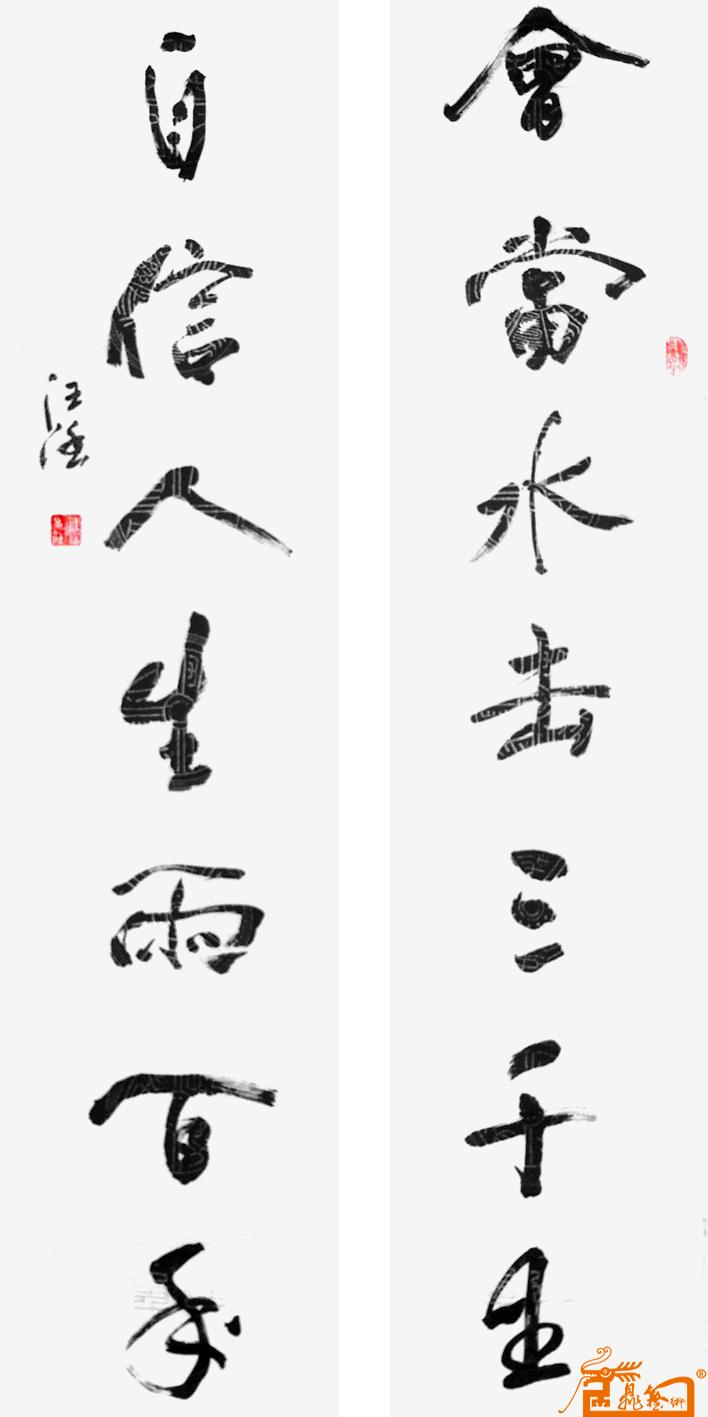 會當水击三千里
自信人生兩百年